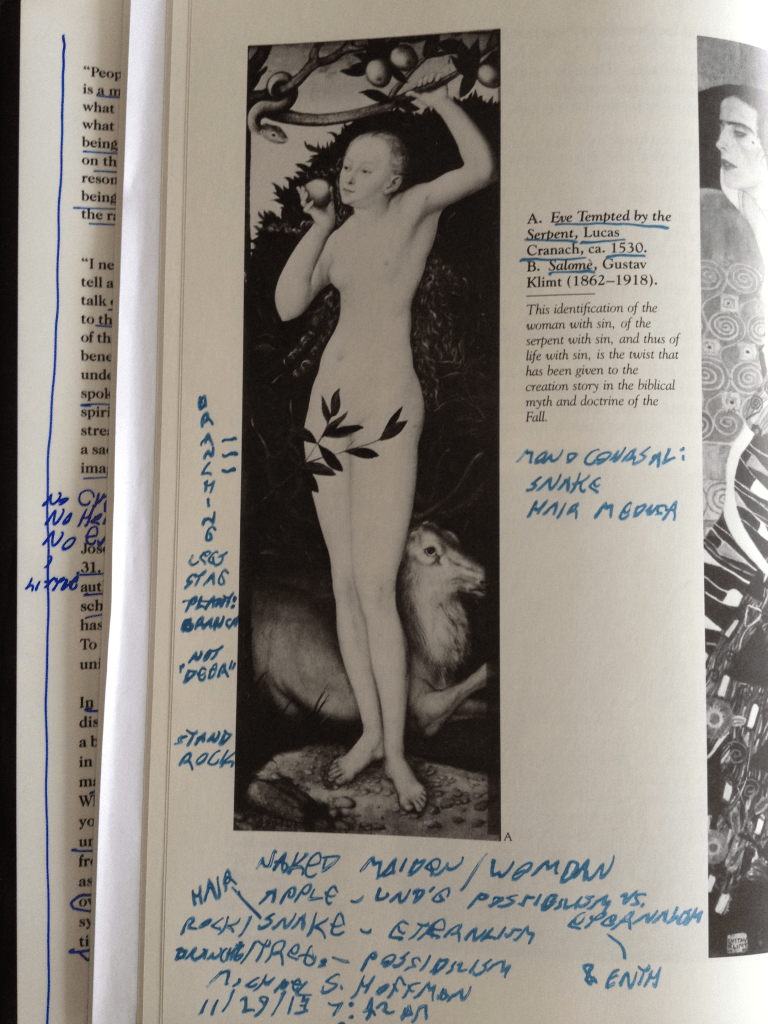 "Peop
is a m
what
what
being
on th
reson
being
the ri
"I ne
tell a
talk
to th
of th
bene
unde
spok
spiri
stre
a sa
ima
No
No He
No
Jos
31.
aut
sch
has
To
uni
In
dis
a b
in
ma
W
yo
un
fro
as
o
sy
ti
A. Eve Tempted by the
Serpent, Lucas
Cranach, ca. 1530.
B. Salomè, Gustav
Klimt (1862–1918).
This identification of the
woman with sin, of the
serpent with sin, and thus of
life with sin, is the twist that
has been given to the
creation story in the biblical
myth and doctrine of the
Fall.
SNAKE
HAIR MEDUSA
BRANCHING
LEGS
STAG
PLANT:
BRANCH
NOT
"DEER"
STAND
ROCK
A
NAKED MAIDEN / WOMDAN
HAIR
APPLE - UND'G POSSIBILISM VS.
ETERNALISM
ROCK/SNAKE - ETERNLISM
BRANCHG/TREE - POSSIBILISM
& ENTH
MICHAEL S. HOFFMAN
11/29/13 7:42 PM